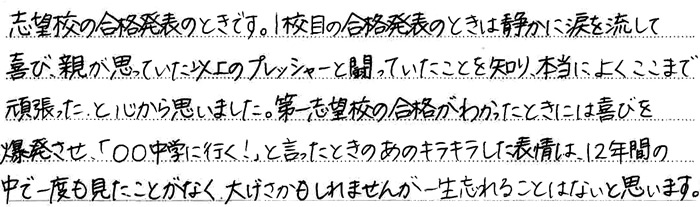 志望校の合格発表のときです。1校目の合格発表のときは静かに涙を流して
喜び、親が思っていた以上のプレッシャーと闘っていたことを知り、本当によくここまで
頑張った、と心から思いました。第一志望校の合格がわかったときには喜びを
爆発させ、「〇〇中学に行く!」と言ったときのあのキラキラした表情は、12年間の
中で一度も見たことがなく、大げさかもしれませんが一生忘れることはないと思います。